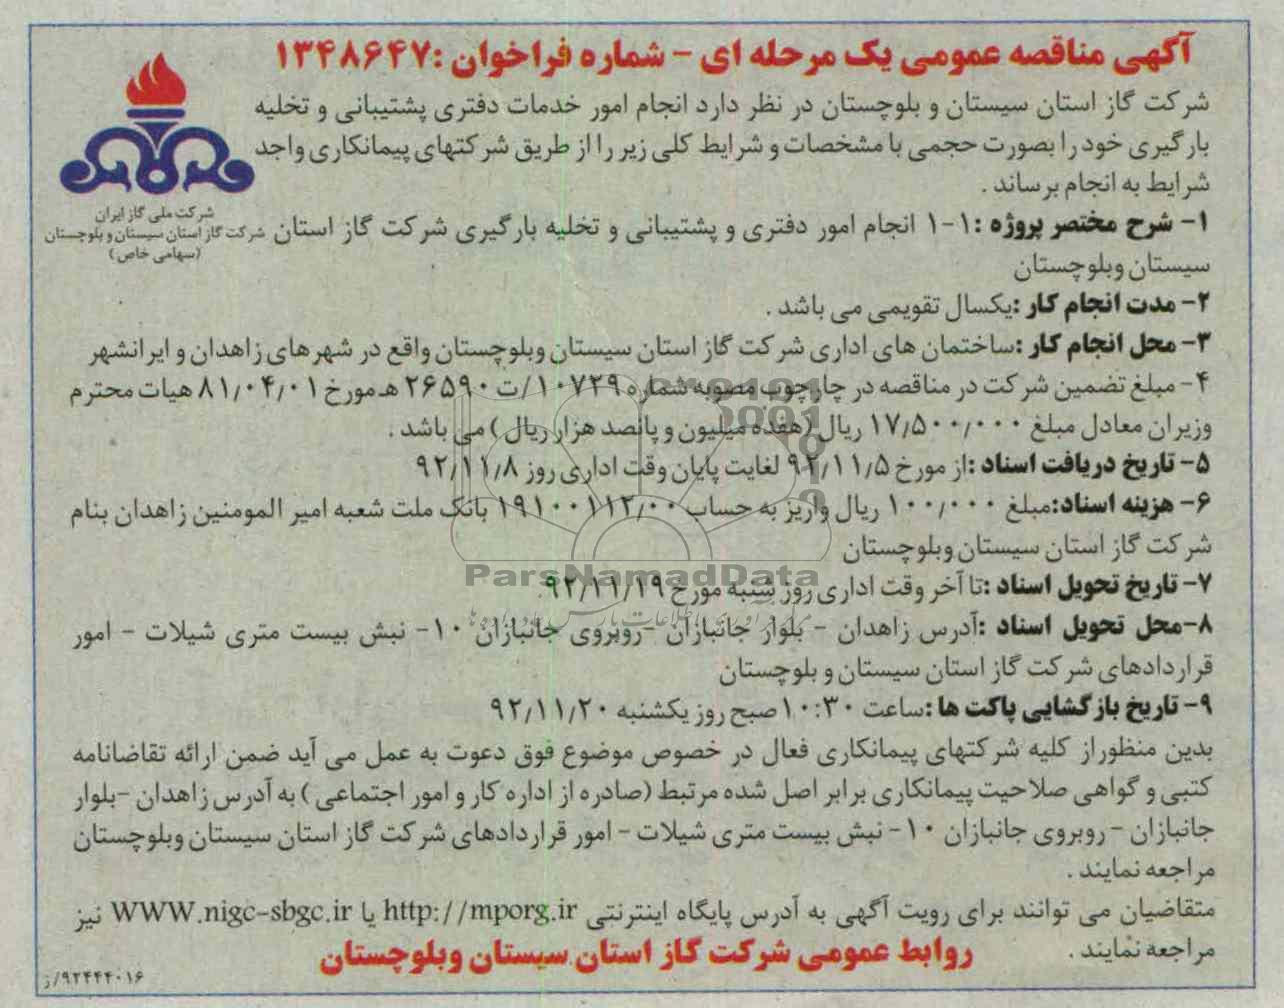 آگهی مناقصه عمومی یک مرحله ای - شماره فراخوان :۱۳۴۸۶۴۷
شرکت گاز استان سیستان و بلوچستان در نظر دارد انجام امور خدمات دفتری پشتیبانی و تخلیه
بارگیری خود را بصورت حجمی با مشخصات و شرایط کلی زیر را از طریق شرکتهای پیمانکاری واجد
شرایط به انجام برساند .
شرکت ملی گاز ایران
شرکت گاز استان سیستان و بلوچستان
(سهامی خاص)
۱- شرح مختصر پروژه :۱-۱ انجام امور دفتری و پشتیبانی و تخلیه بارگیری شرکت گاز استان
سیستان وبلوچستان
۲- مدت انجام کار :یکسال تقویمی می باشد .
۳- محل انجام کار :ساختمان های اداری شرکت گاز استان سیستان وبلوچستان واقع در شهرهای زاهدان و ایرانشهر
۴- مبلغ تضمین شرکت در مناقصه در چارچوب مصوبه شماره ۱۰۷۲۹/ت ۲۶۵۹۰ هـ مورخ ۸۱/۰۴/۰۱ هیات محترم
وزیران معادل مبلغ ۱۷/۵۰۰/۰۰۰ ریال (هفده میلیون و پانصد هزار ریال ) می باشد .
۵- تاریخ دریافت اسناد :از مورخ ۹۲/۱۱/۵ لغایت پایان وقت اداری روز ۹۲/۱۱/۸
۶- هزینه اسناد:مبلغ ۱۰۰/۰۰۰ ریال واریز به حساب ۱۹۱۰۰۱۱۲/۰۰ بانک ملت شعبه امیر المومنین زاهدان بنام
شرکت گاز استان سیستان وبلوچستان
ParsNamadData
۷- تاریخ تحویل اسناد :تا آخر وقت اداری روز شنبه مورخ ۹۲/۱۱/۱۹
۸-محل تحویل اسناد :آدرس زاهدان - بلوار جانبازان -روبروی جانبازان ۱۰- نبش بیست متری شیلات - امور
قراردادهای شرکت گاز استان سیستان و بلوچستان
۹- تاریخ بازگشایی پاکت ها :ساعت ۱۰:۳۰ صبح روز یکشنبه ۹۲/۱۱/۲۰
بدین منظوراز کلیه شرکتهای پیمانکاری فعال در خصوص موضوع فوق دعوت به عمل می آید ضمن ارائه تقاضانامه
کتبی و گواهی صلاحیت پیمانکاری برابر اصل شده مرتبط (صادره از اداره کار و امور اجتماعی ) به آدرس زاهدان -بلوار
جانبازان - روبروی جانبازان ۱۰- نبش بیست متری شیلات - امور قراردادهای شرکت گاز استان سیستان وبلوچستان
مراجعه نمایند .
متقاضیان می توانند برای رویت آگهی به آدرس پایگاه اینترنتی http://mporg.ir یا WWW.nigc-sbgc.ir نیز
مراجعه نمایند .
روابط عمومی شرکت گاز استان سیستان وبلوچستان
۹۲۴۴۴۰۱۶/ز